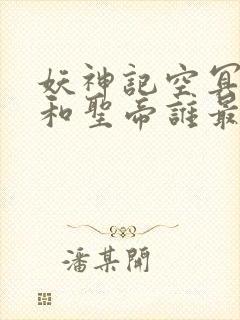 妖神記空冥
和聖帝誰最
潘某開